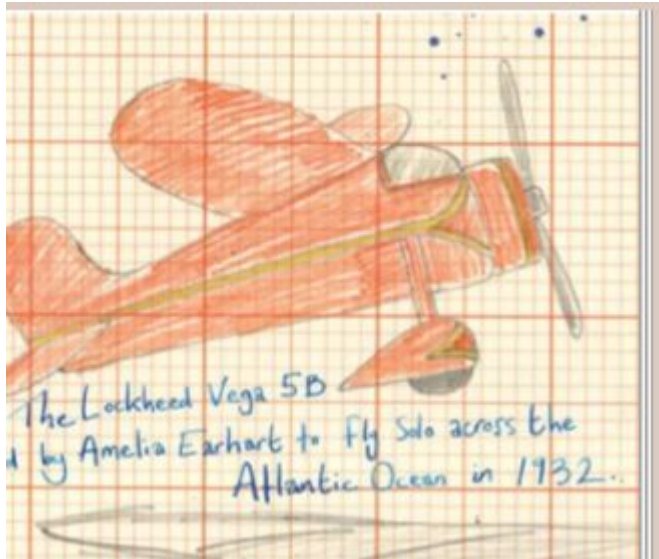 The Lockheed Vega 5B
by Amelia Earhart to fly Solo across the
Atlantic Ocean in 1932.